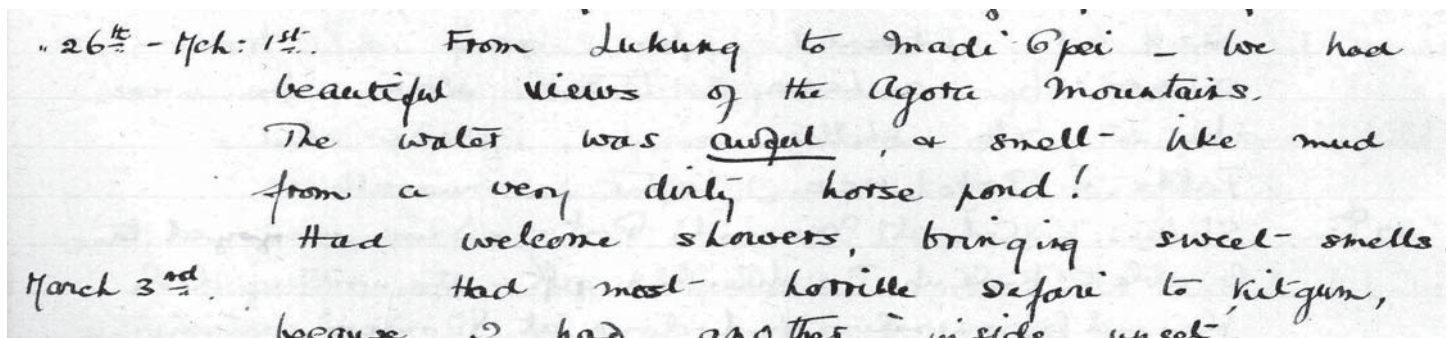 " 26th - Mch: 1st From Lukung to Madi Opei - We had
beautiful views of the Agora Mountains.
The water was awful, & smelt like mud
from a very dirty horse pond!
Had welcome showers, bringing sweet smells
March 3rd. Had most horrible safari to Kitgum,
because I had another inside upset.